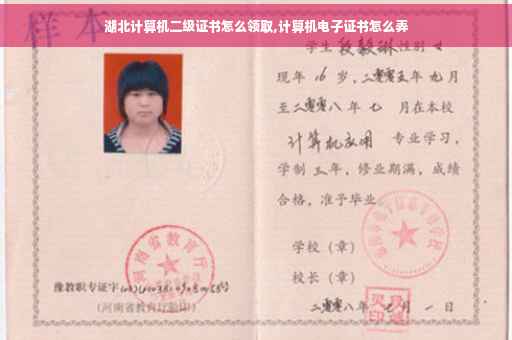 湖北计算机二级证书怎么领取,计算机电子证书怎么弄
样本
学生段毅琳性别女
现年16岁,二零零五年九月
至二零零八年七月在本校
计算机应用 专业学习,
学制三年,修业期满,成绩
合格,准予毕业
学校(章)
校长(章)
二零零八年七月一日
河南省教育厅
豫教职专证字
(河南省教育厅验印)